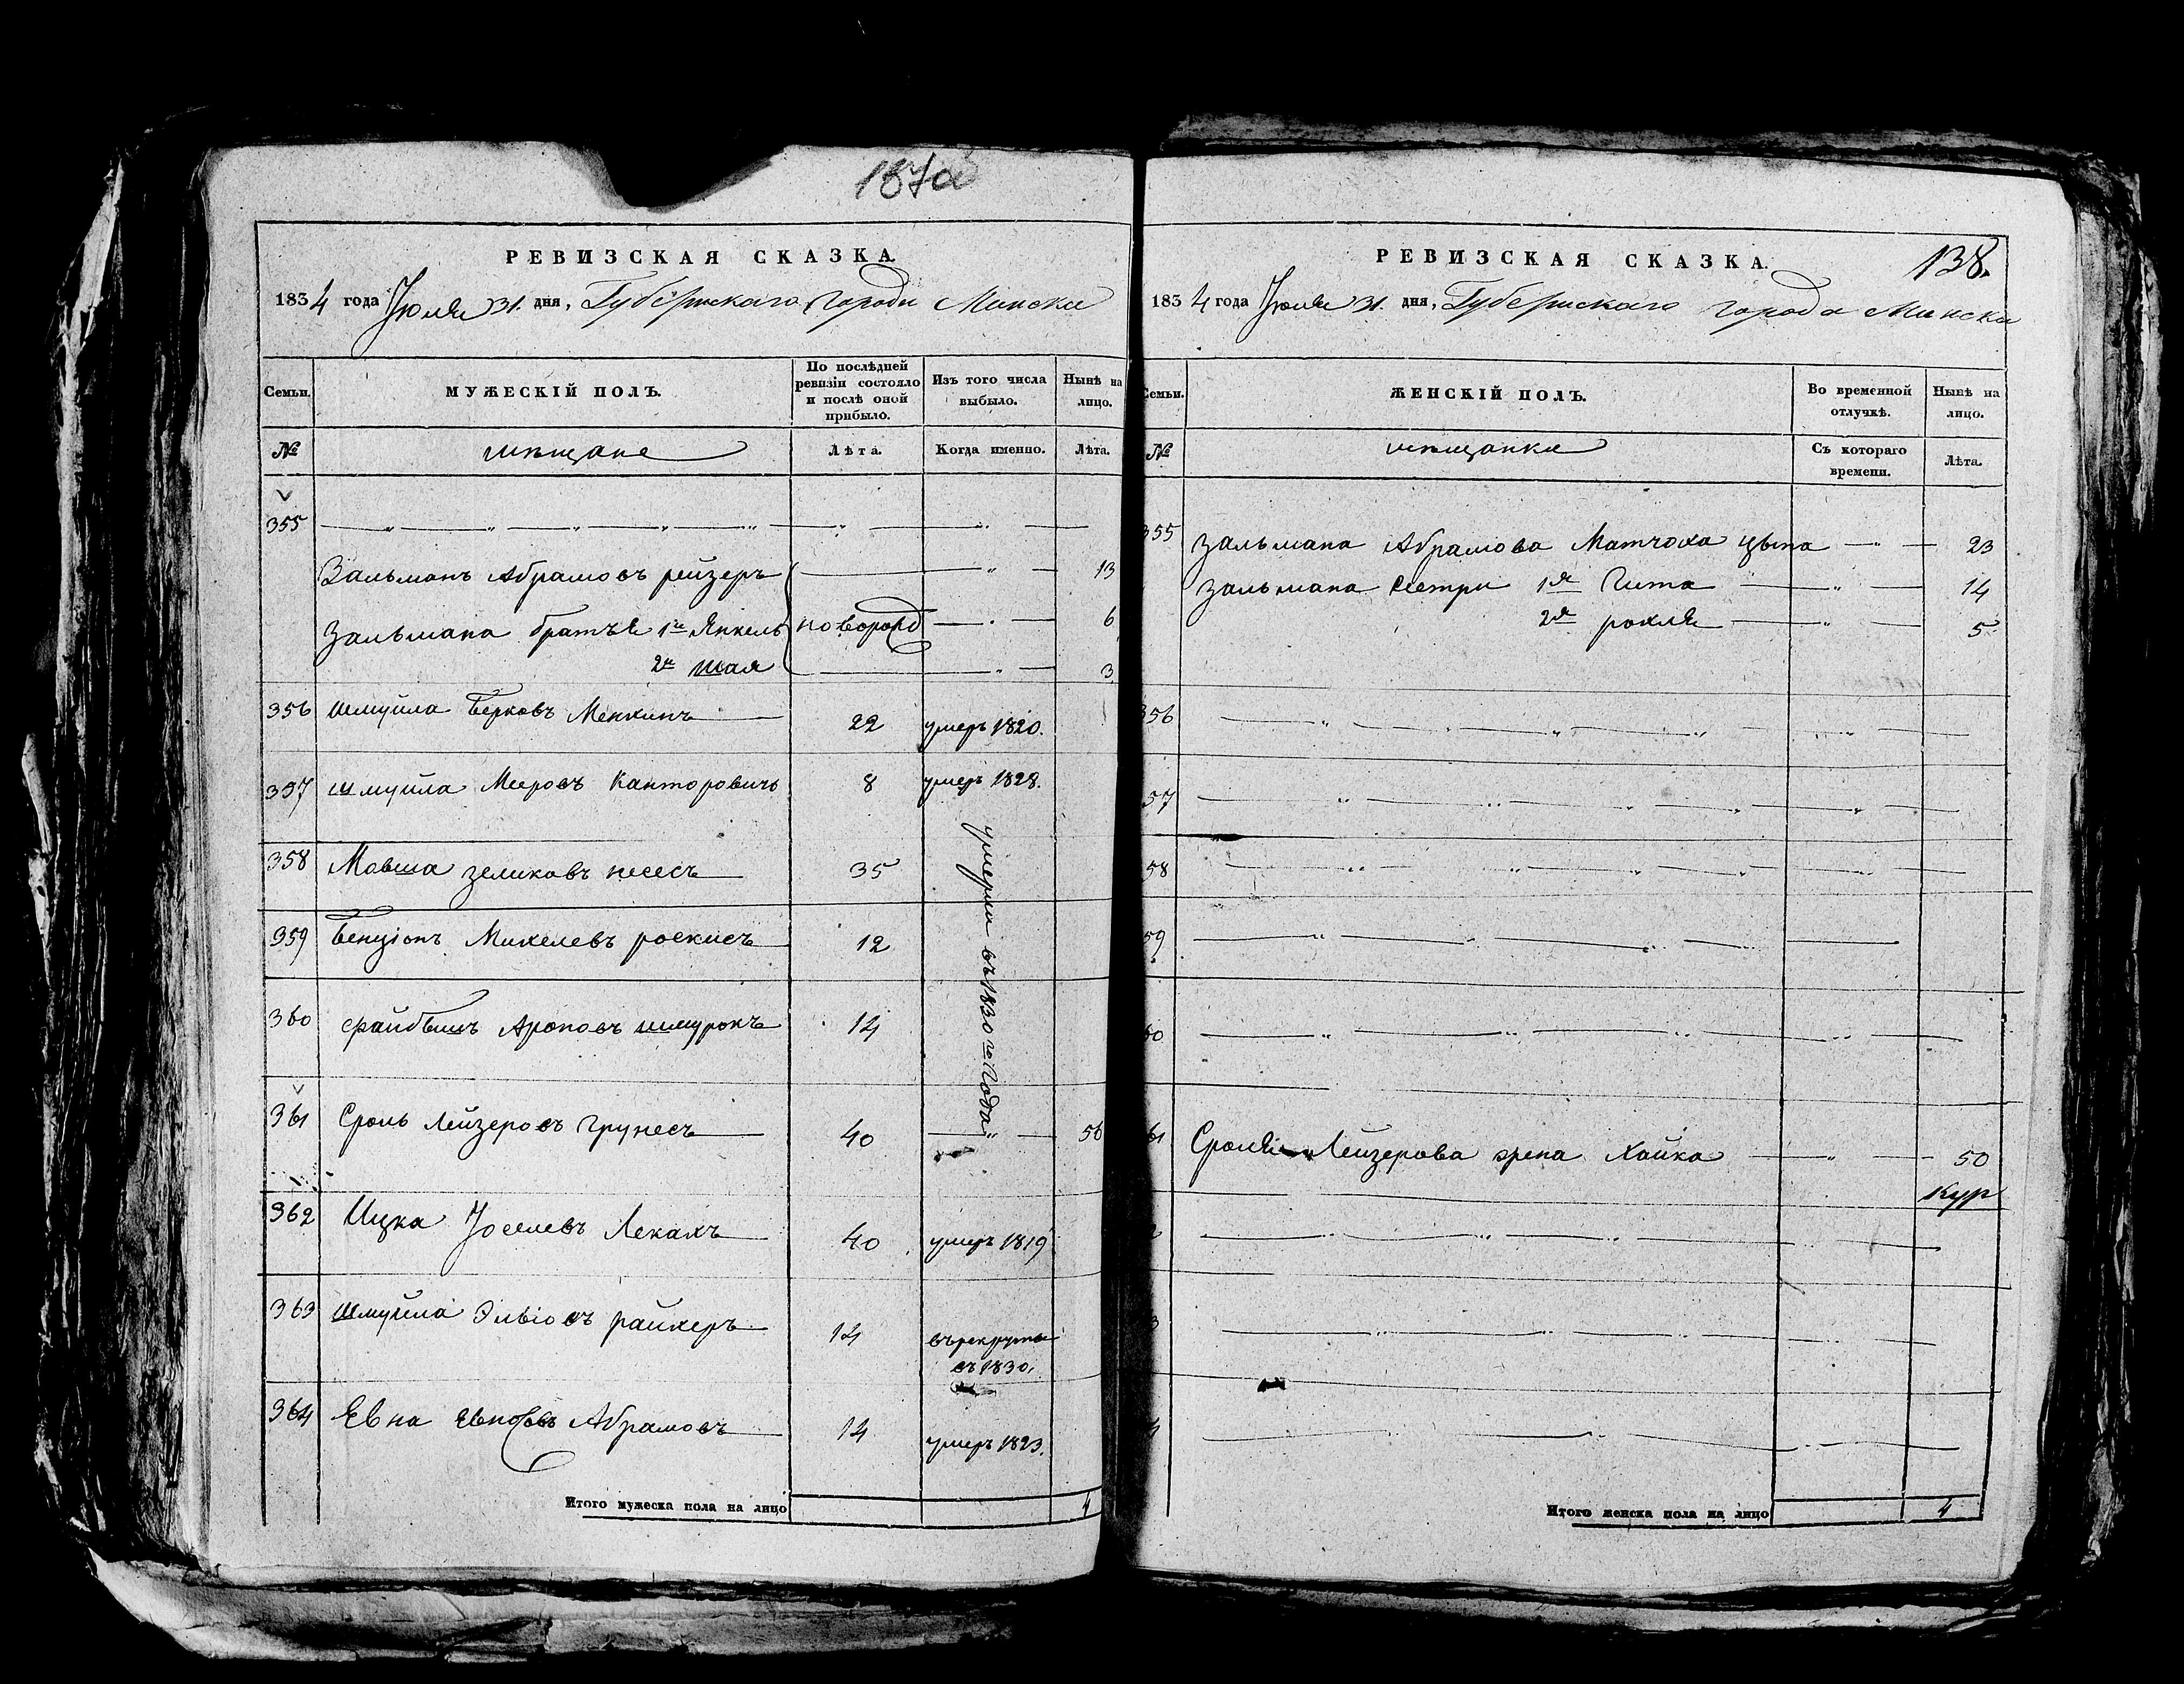 РЕВИЗСКАЯ СКАЗКА.
1834 года Июля 31. дня, Губернскаго города Минска
Семьи.
МУЖЕСКІЙ ПОЛЪ.
По послѣдней ревизіи состояло и послѣ оной прибыло.
Изъ того числа выбыло.
Нынѣ на лицо.
№
мѣщане
Лѣта.
Когда именно.
Лѣта.
355
Зальманъ Абрамовъ рейзеръ 13
Зальмана братья 1й Янкель новорожд 6
2й Шая 3
356 Шмуйла Берковъ Менкинъ 22 умеръ 1820.
357 Шмуйла Мееровъ Канторовичъ 8 умеръ 1828.
358 Мовша зеликовъ несесъ 35
умерли въ 1830го года
359 Бенціонъ Михелевъ роскисъ 12
360 Файбишъ Ароновъ шмурокъ 14
361 Сроль Лейзеровъ Грунесъ 40 56
362 Ицка Іоселевъ Лекахъ 40 умеръ 1819
363 Шмуйла Эльіовъ райхеръ 14 въ рекруты
въ 1830.
364 Евна Евновъ Абрамовъ 14 умеръ 1823.
Итого мужеска пола на лицо 4
138.
РЕВИЗСКАЯ СКАЗКА.
1834 года Июля 31. дня, Губернскаго города Минска
Семьи.
ЖЕНСКІЙ ПОЛЪ.
Во временной отлучкѣ.
Нынѣ на лицо.
№
мѣщанки
Съ котораго времени.
Лѣта.
355 Зальмана Абрамова Матчоха цына 23
Зальмана Сестры 1я Гита 14
2я рохля 5
356
57
58
59
60
61 Сроля Лейзерова жена Хайка 50
Кур
Итого женска пола на лицо 4